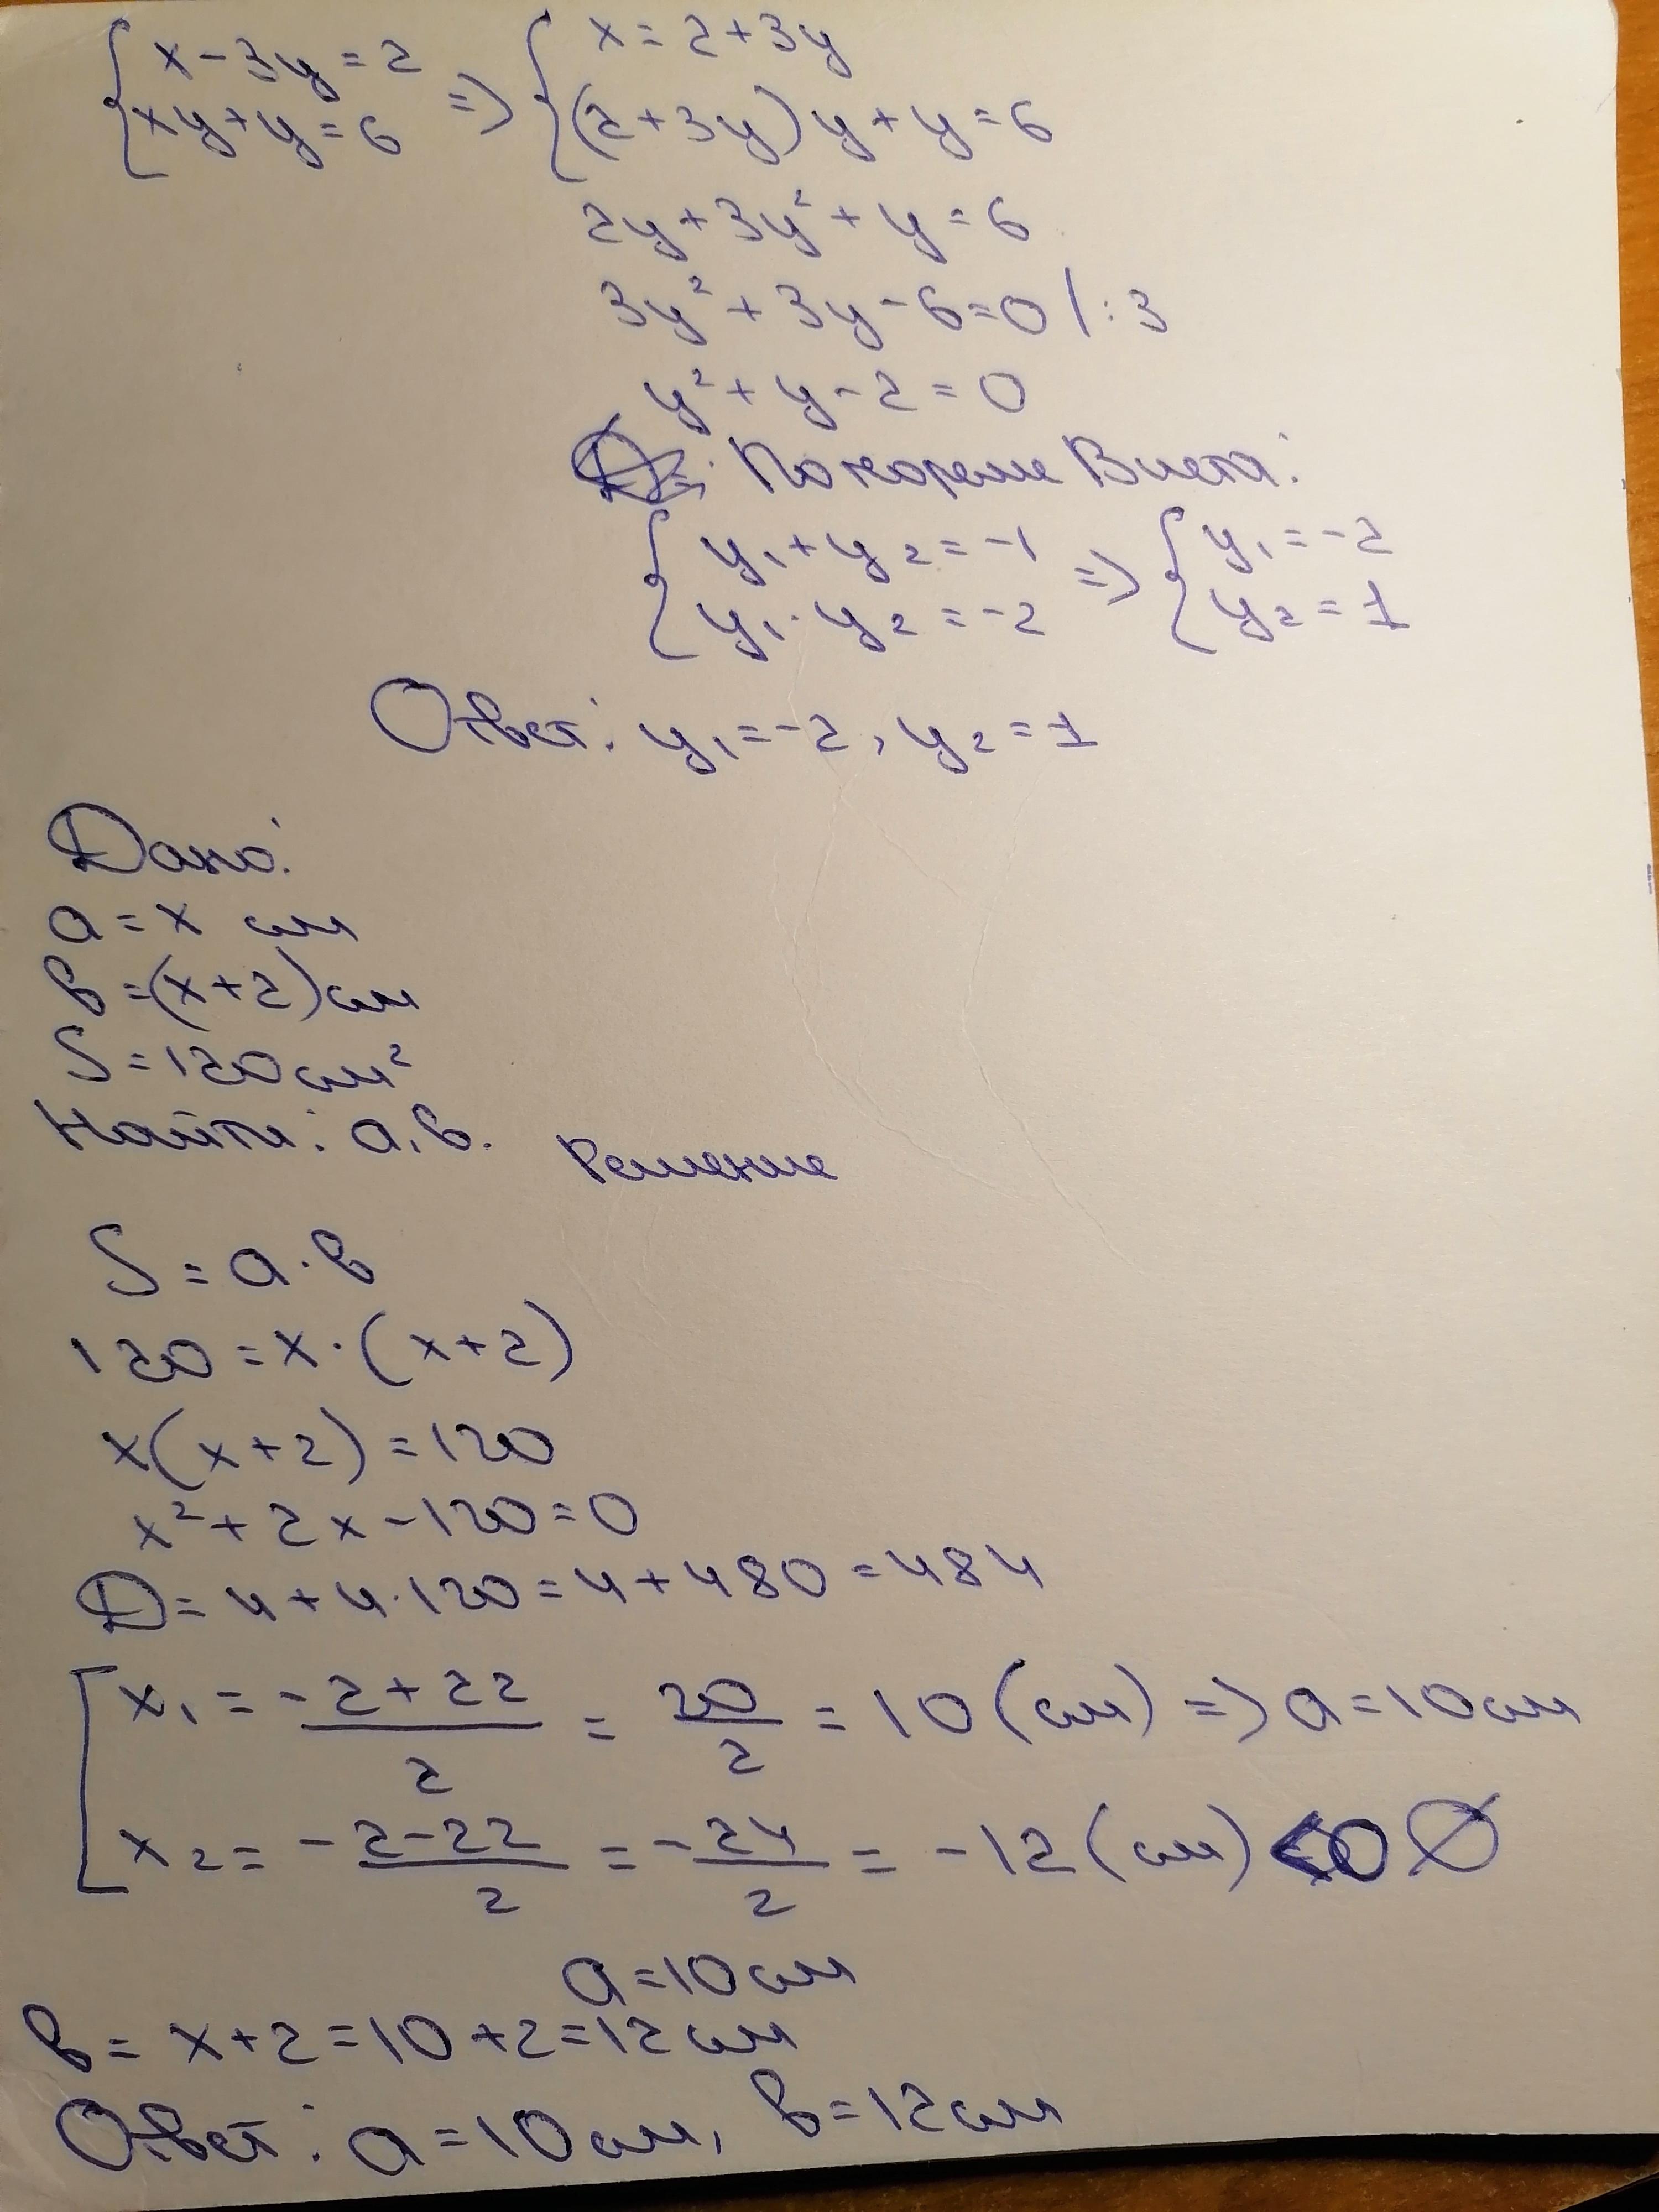 {x-3y=2 => {x=2+3y
{xy+y=6 {(2+3y)y+y=6
2y+3y²+y=6
3y²+3y-6=0 |:3
y²+y-2=0
По теореме Виета:
{y₁+y₂=-1 => {y₁=-2
{y₁·y₂=-2 {y₂=1
Ответ: y₁=-2, y₂=1
Дано:
a=x см
b=(x+2)см
S=120см²
Найти: a, b.
Решение
S=a·b
120=x·(x+2)
x(x+2)=120
x²+2x-120=0
D=4+4·120=4+480=484
[x₁=(-2+22)/2=20/2=10(см) => a=10см
[x₂=(-2-22)/2=-24/2=-12(см)<0 ∅
a=10см
b=x+2=10+2=12см
Ответ: a=10см, b=12см